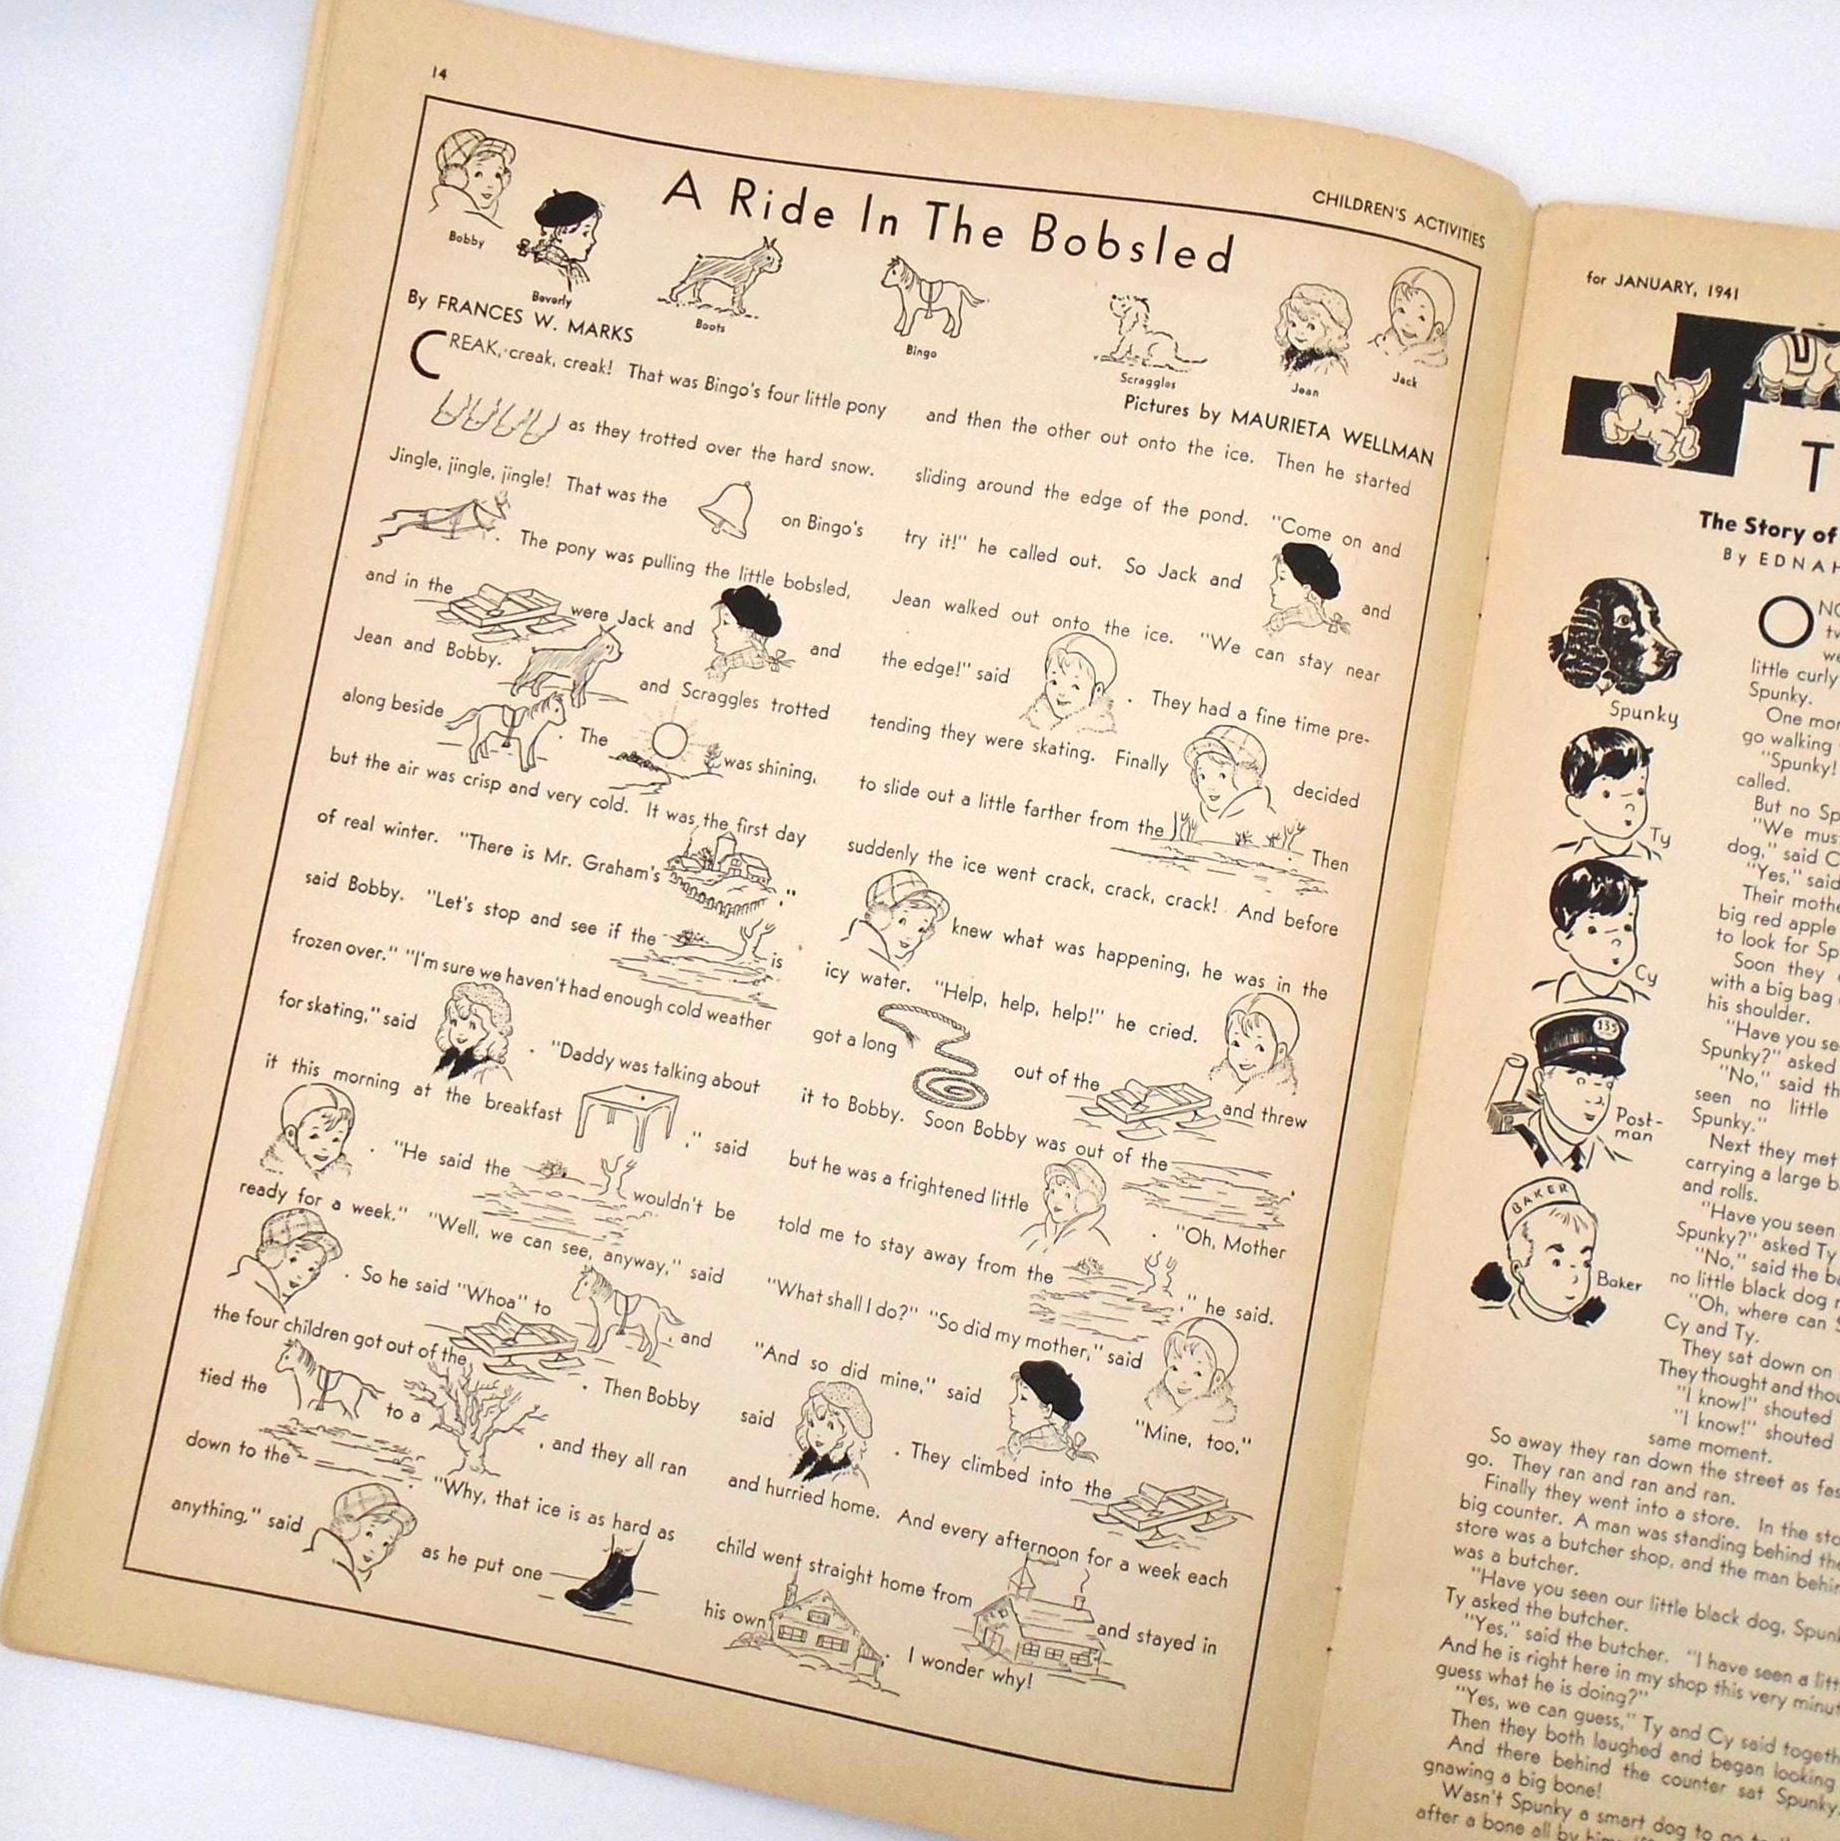 14
CHILDREN'S ACTIVITIES
A Ride In The Bobsled
Bobby
Beverly
Boots
Bingo
Scraggles
Jean
Jack
By FRANCES W. MARKS
Pictures by MAURIETA WELLMAN
CREAK, creak, creak! That was Bingo's four little pony
as they trotted over the hard snow.
Jingle, jingle, jingle! That was the on Bingo's
. The pony was pulling the little bobsled,
and in the were Jack and and
Jean and Bobby. and Scraggles trotted
along beside . The was shining,
but the air was crisp and very cold. It was the first day
of real winter. "There is Mr. Graham's ,"
said Bobby. "Let's stop and see if the is
frozen over." "I'm sure we haven't had enough cold weather
for skating," said . "Daddy was talking about
it this morning at the breakfast ," said
. "He said the wouldn't be
ready for a week." "Well, we can see, anyway," said
. So he said "Whoa" to , and
the four children got out of the . Then Bobby
tied the to a , and they all ran
down to the . "Why, that ice is as hard as
anything," said as he put one
and then the other out onto the ice. Then he started
sliding around the edge of the pond. "Come on and
try it!" he called out. So Jack and and
Jean walked out onto the ice. "We can stay near
the edge!" said . They had a fine time pre-
tending they were skating. Finally decided
to slide out a little farther from the . Then
suddenly the ice went crack, crack, crack! And before
knew what was happening, he was in the
icy water. "Help, help, help!" he cried.
got a long out of the and threw
it to Bobby. Soon Bobby was out of the ,
but he was a frightened little . "Oh, Mother
told me to stay away from the ," he said.
"What shall I do?" "So did my mother," said
"And so did mine," said "Mine, too,"
said . They climbed into the
and hurried home. And every afternoon for a week each
child went straight home from and stayed in
his own . I wonder why!
for JANUARY, 1941
T
The Story of
By EDNAH
Spunky
Ty
Cy
135
Post-
man
BAKER
Baker
little curly
Spunky.
One mor
go walking
"Spunky!
called.
But no Sp
"We mus
dog," said C
"Yes," said
Their mothe
big red apple
to look for Sp
Soon they
with a big bag
his shoulder.
"Have you se
Spunky?" asked
"No," said th
seen no little
Spunky."
Next they met
carrying a large b
and rolls.
"Have you seen
Spunky?" asked Ty
"No," said the b
no little black dog
"Oh, where can S
Cy and Ty.
They sat down on
They thought and thou
"I know!" shouted
"I know!" shouted
same moment.
So away they ran down the street as fas
go. They ran and ran and ran.
Finally they went into a store. In the sto
big counter. A man was standing behind the
store was a butcher shop, and the man behin
was a butcher.
"Have you seen our little black dog, Spunk
Ty asked the butcher.
"Yes," said the butcher. "I have seen a litt
And he is right here in my shop this very minut
guess what he is doing?"
"Yes, we can guess," Ty and Cy said togeth
Then they both laughed and began looking
And there behind the counter sat Spunky,
gnawing a big bone!
Wasn't Spunky a smart dog to go
after a bone all by